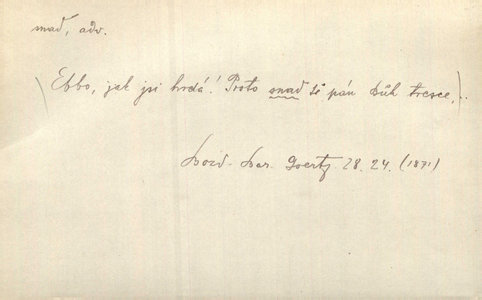 snad, adv.
Ebbo, jak jsi hrdá! Proto snad tě pán bůh tresce,
Bozd. Bar. Goertz 28. 24. (1871)